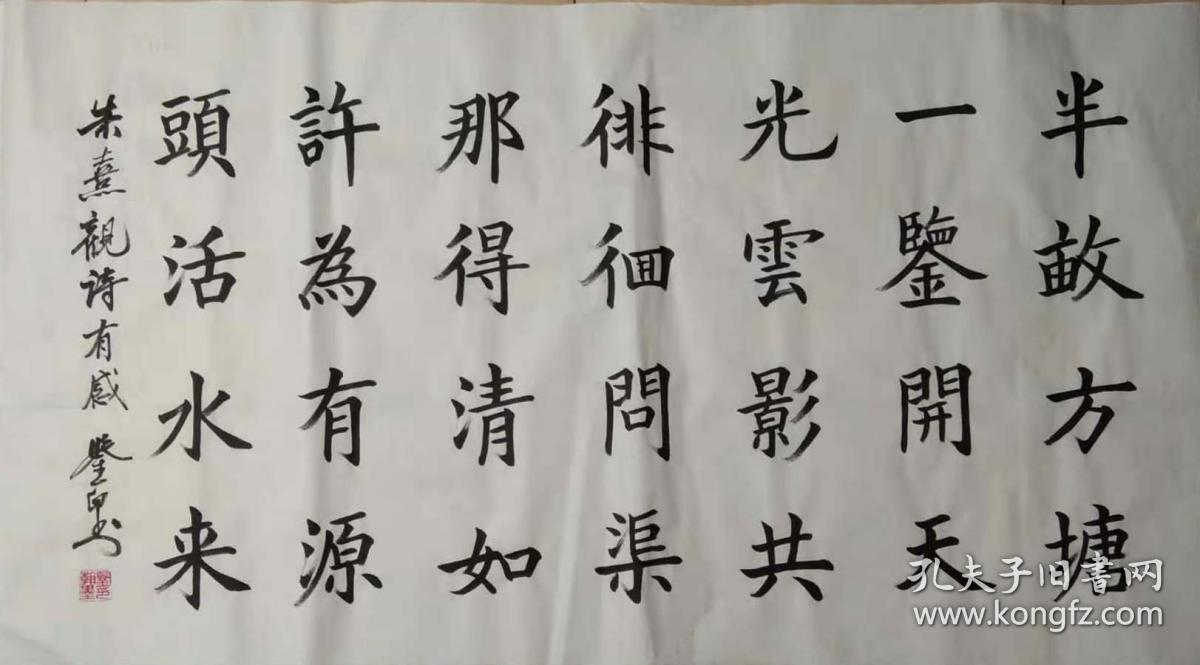 半畝方塘
一鑒開天
光雲影共
徘徊問渠
那得清如
許為有源
頭活水来
朱熹觀诗有感
孔夫子旧書网
www.kongfz.com